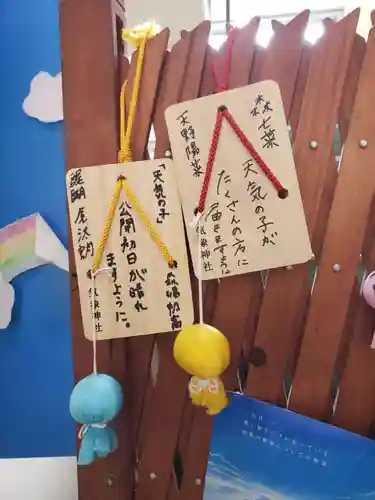 森七菜
天気の子が
たくさんの方に
届きますように
天野陽菜
気象神社
「天気の子」
公開初日が晴れ
ますように。
醍醐虎汰朗
気象神社